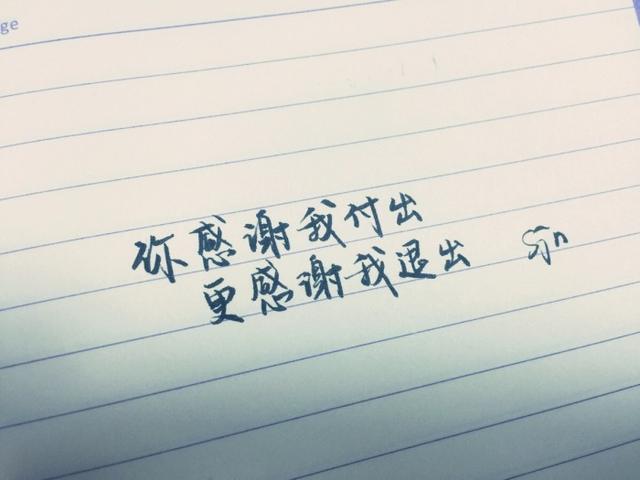 ge
你感谢我付出
更感谢我退出